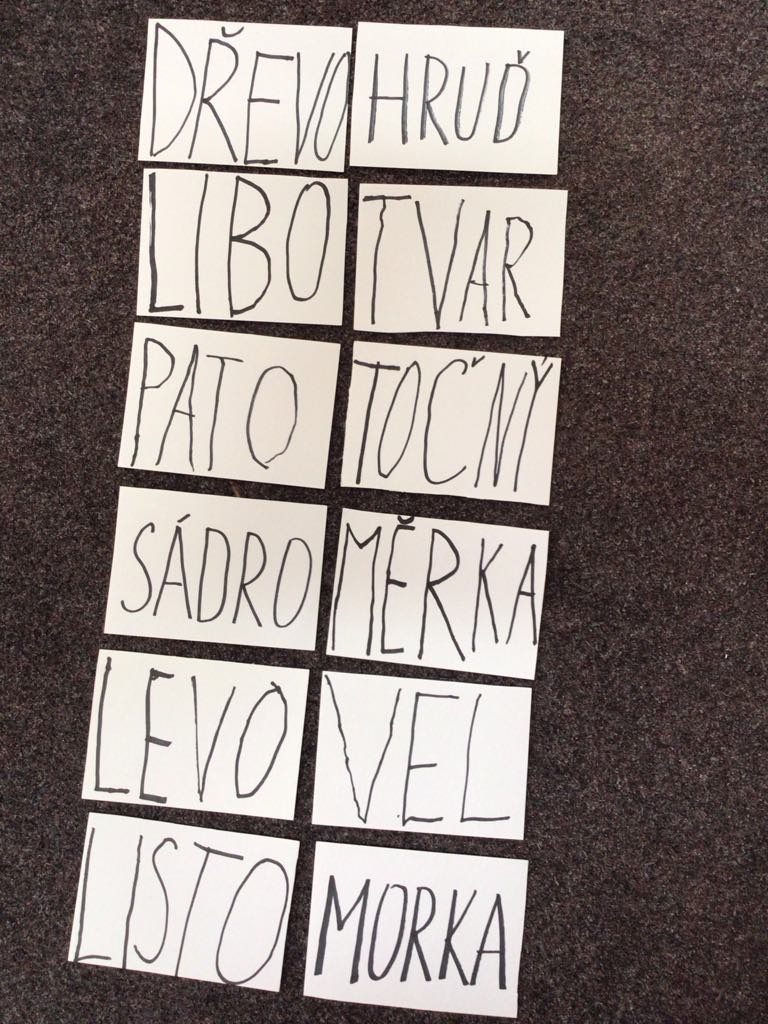 DŘEVO HRUĎ
LIBO TVAR
PATO TOČNÝ
SÁDRO MĚRKA
LEVO VEL
LISTO MORKA